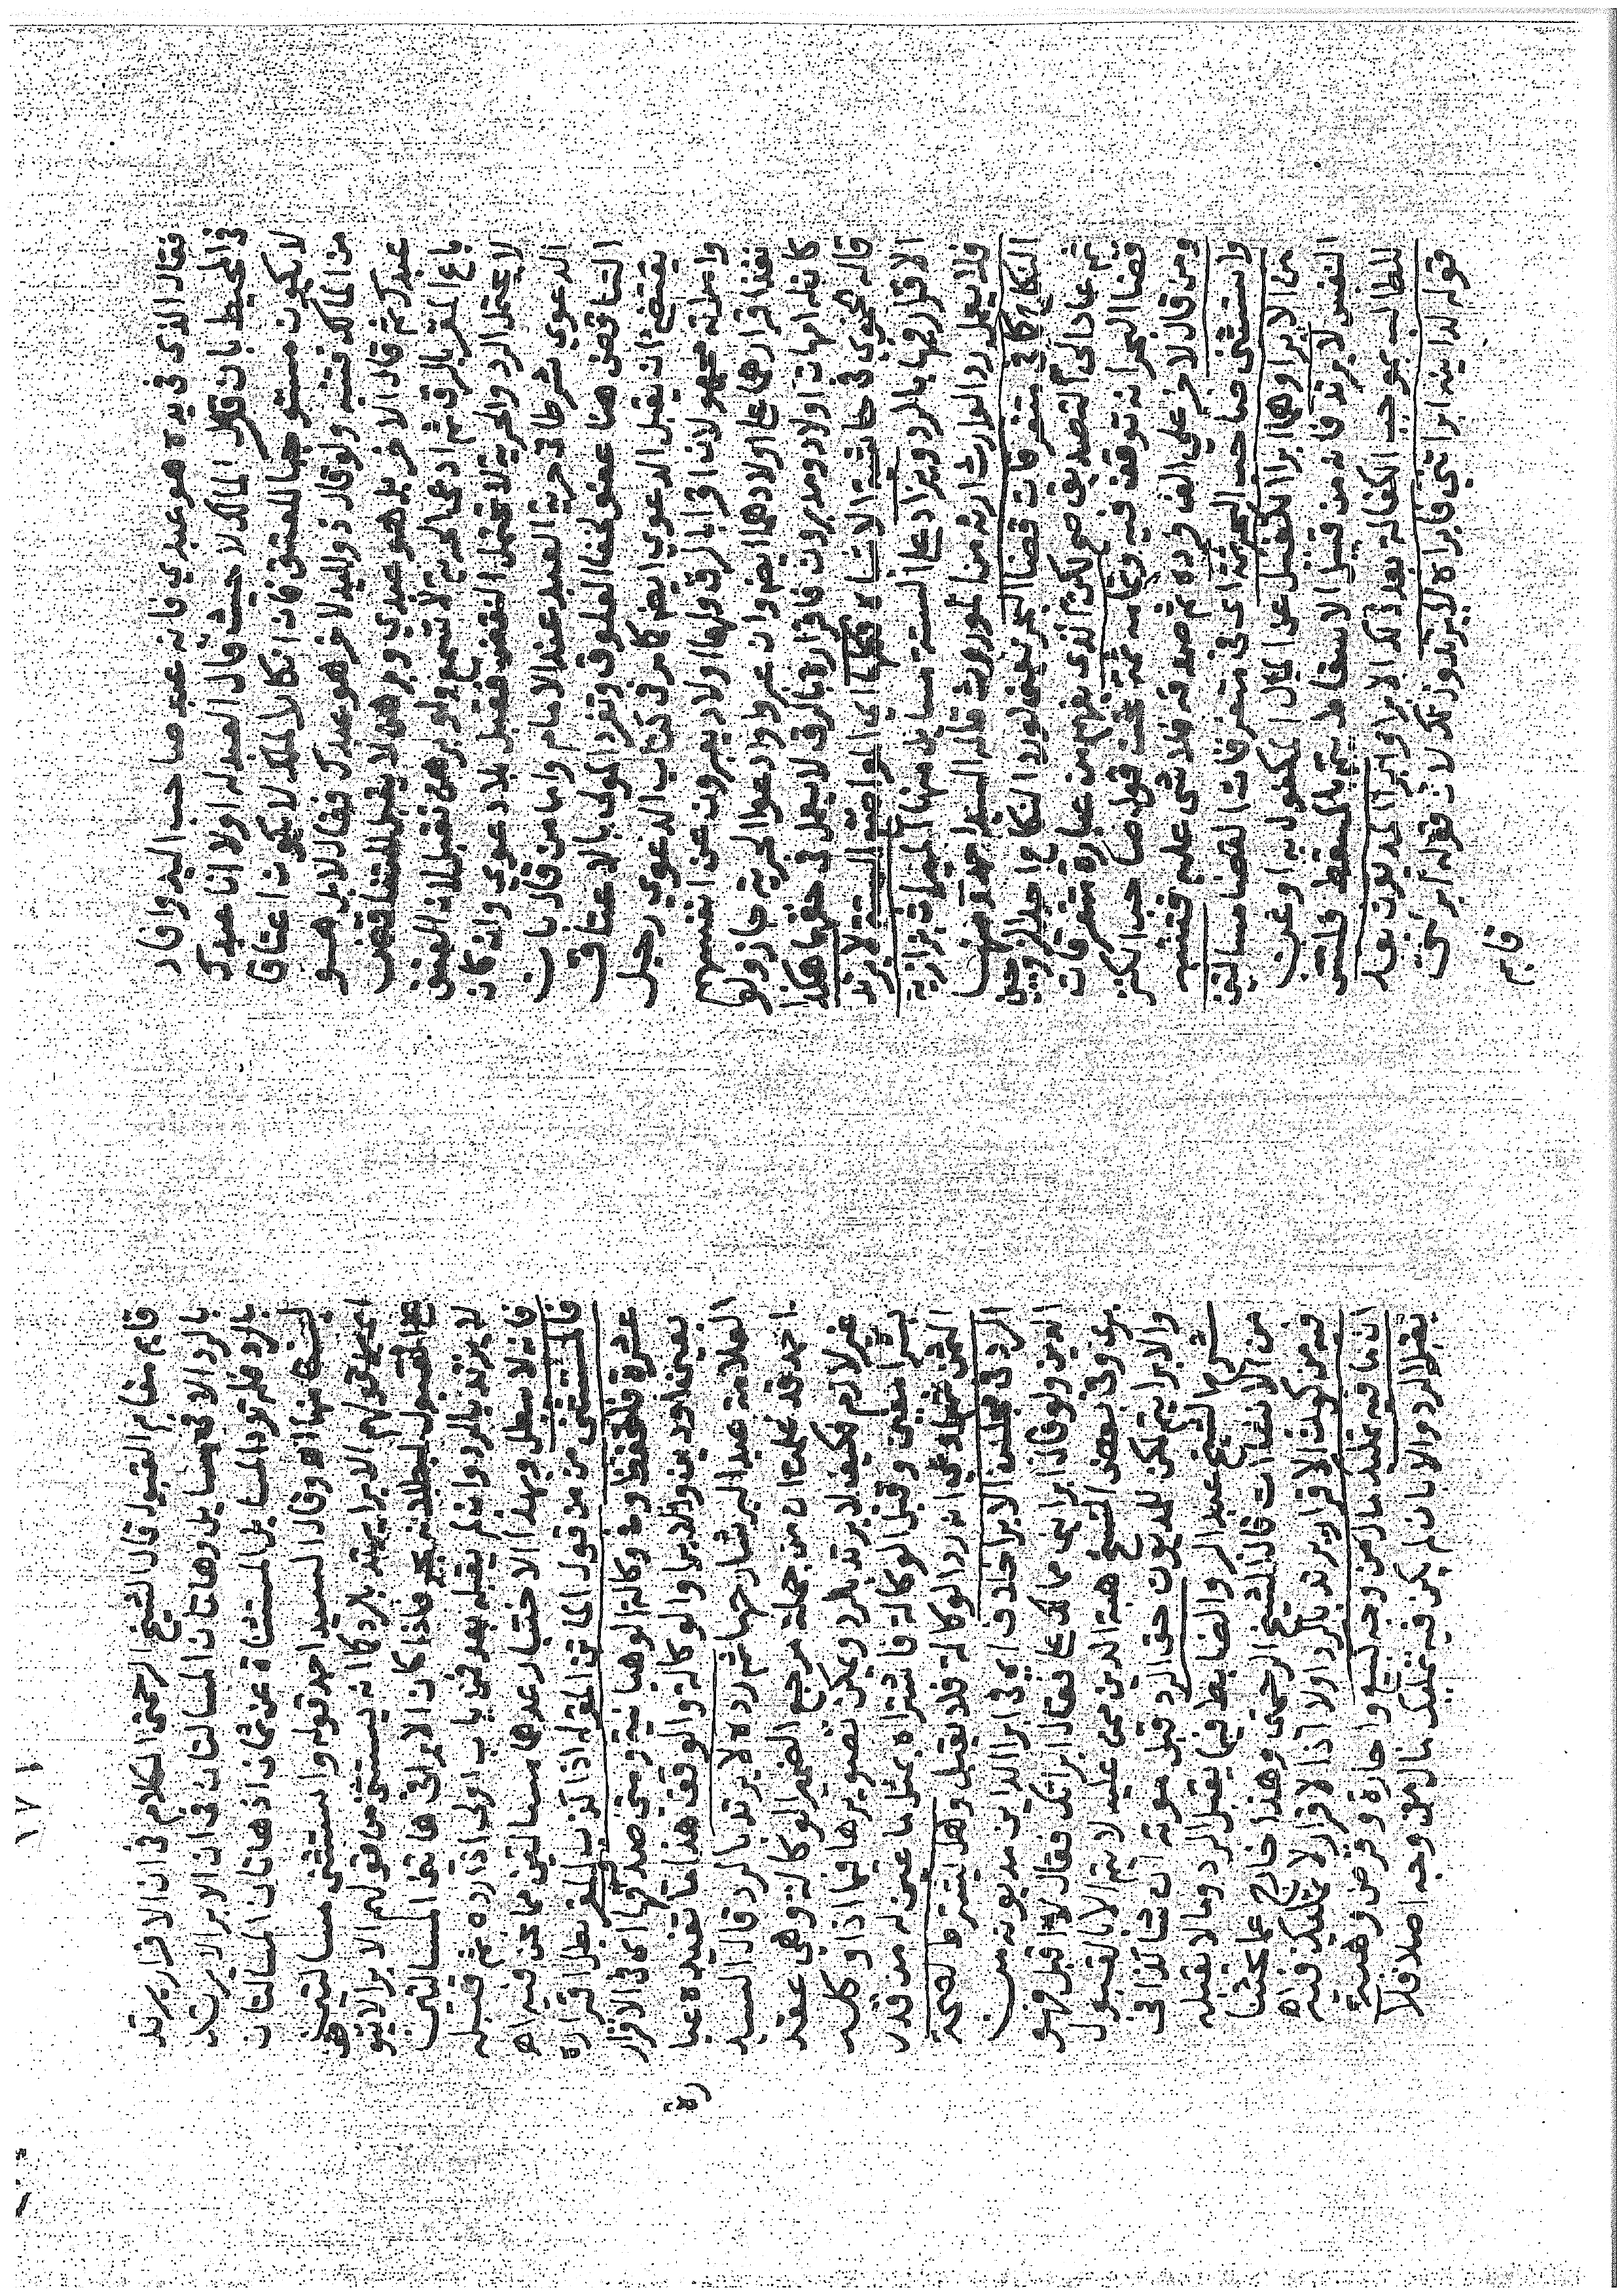 فقال الذي في يده هو عبدي فانه عبد صاحب اليد وافاد
في المحيط بان قول المالك لا حيث قال العبد له اولا انا عبدك
لا يكون مستوجبا للعتق فان انكار الملك لا يكون اعتاق
من المالك فتنبه ولو قال ذو اليد لاخر هو عبدك فقال لا بل هو
عبدك ثم قال الاخر بل هو عبدي وبرهن لا يقبل للتناقض
باع المقر بالرق ثم ادعى الحرية لا تسمع ولو برهن تقبل لان العتق
لا يحتمل الرد والحرية لا تحتمل النقض فتقبل بلا دعوي وان كان
الدعوي شرطا في حرية العبد عند الامام واما من قال بان
التناقض هنا عفو لخفا العلوق وتفرد المولى بالاعتاق
يقتضي ان تقبل الدعوي ايضا كما مر في كتاب الدعوي رجل
وامراة مجهولان اقرا بالرق ولهما اولاد يعبرون عن انفسهم
نفذ اقرارهما على اولادهما ايضا وان ادعوا الحرية جاز ولو
كان له امهات اولاد ومدبرون فاقراره بالرق لا يعمل في حقهم هكذا
قاله الحموي في حاشية الاشباه اي المواضع الستة لا يرتد
الاقرار فيها بالرد ويزاد على الستة مسايل منها الميراث بزازية
فلا يعمل رد الوارث ارثه من المورث قاله السيد احمد ومنها
النكاح كما في متفرقات قضا البحر يعني لو رد النكاح احد الزوجين
ثم عاد الى التصديق صح لكن الذي يفهم من عبارة متفرقات
قضا البحر انه توقف فيه وتمامه ثمة تحت قول صاحب الكنز
ومن قال لاخر علي الف فرده ثم صدقه فلا شي عليه فتنبه
واستثنى صاحب البحر ثمة اي في متفرقات القضا مسالتين
من الابرا وهما ابرا الكفيل عن المال المكفول به او عن
النفس لا يرتد فانه من قبيل الاسقاط يتم بالمسقط فليس
للطالب موجب الكفالة بعد ذلك الابرا وابرا المديون بعد
قوله لداينه ابراتني فابراه لا يرتد وذلك لان قوله ابرئني
قايم
١٧١
قايم مقام القبول قال الشيخ الرحمتي الكلام في ان الاقرار يرتد
بالرد الا في مسايل وهاتان المسالتان في ان الابرا لا يرتد
بالرد فلم تزد المسايل المستثناة عن ثمان اذ هاتان المسالتان
ليستا منها اه وقال السيد احمد قوله واستثنى مسالتين
اي من قولهم الابرا يرتد بالرد كما انه يستثنى من قولهم الابرا لا يتو
على القبول فاذا كان الابرا في هاتين المسالتين
لا يرتد بالرد وان لم يقبله بعد فمن باب اولى اذا رده ثم قبله
فانه لا يبطل وبهذا الاختيار عدها مسالتين مما نحن فيه اه
فالمستثنى من من قول الماتن المقر له اذا كذب المقر بطل اقراره
عشرة فلتحفظ وفي وكالة الوهبانية ومتى صدقه اي في الاقرار
يعني او دين والابرا والوكالة والوقف هذا ما تفيده عبا
رة
العلامة عبد البر شارحها ثم رده لا يرتد بالرد قال السيد
احمد قد علمنا ان من جملة مرجع الضمير الوكالة وهي عقد
غير لازم فكيف لا يرتد بالرد ويمكن تصويرها فيما اذا وكله
بشرا معين وقبل الوكالة فاشتراه بمثل ما عين له من قدر
الثمن ان رد الوكالة فلا يقبل وهل يشترط لصحة
الرد في مجلس الابرا خلاف اي في ابرا الداين مديونه من
الدين ولو قال ابراني مما لك علي فقال ابراتك فقال لا اقبل فهو
بري وفي بعض النسخ هبة الدين ممن عليه لا يتم الا بالقبول
والابرا يتم لكن للمديون حق الرد قبل موته ان شا كذا في
شرحها للشيخ عبد البر والضابط فيما يقبل الرد وما لا يقبله
من الانشاات قال الشيخ الرحمتي وهذا خارج عما بحثنا
فيه من كون الاقرار يرتد بالرد اولا اذ الاقرار لا تمليك فيه اه
ان ما فيه تمليك مال من وجه كبيع واجارة وقرض وهبة
يقبل الرد والا بان لم يكن فيه تمليك مال من وجه اصلا فلا